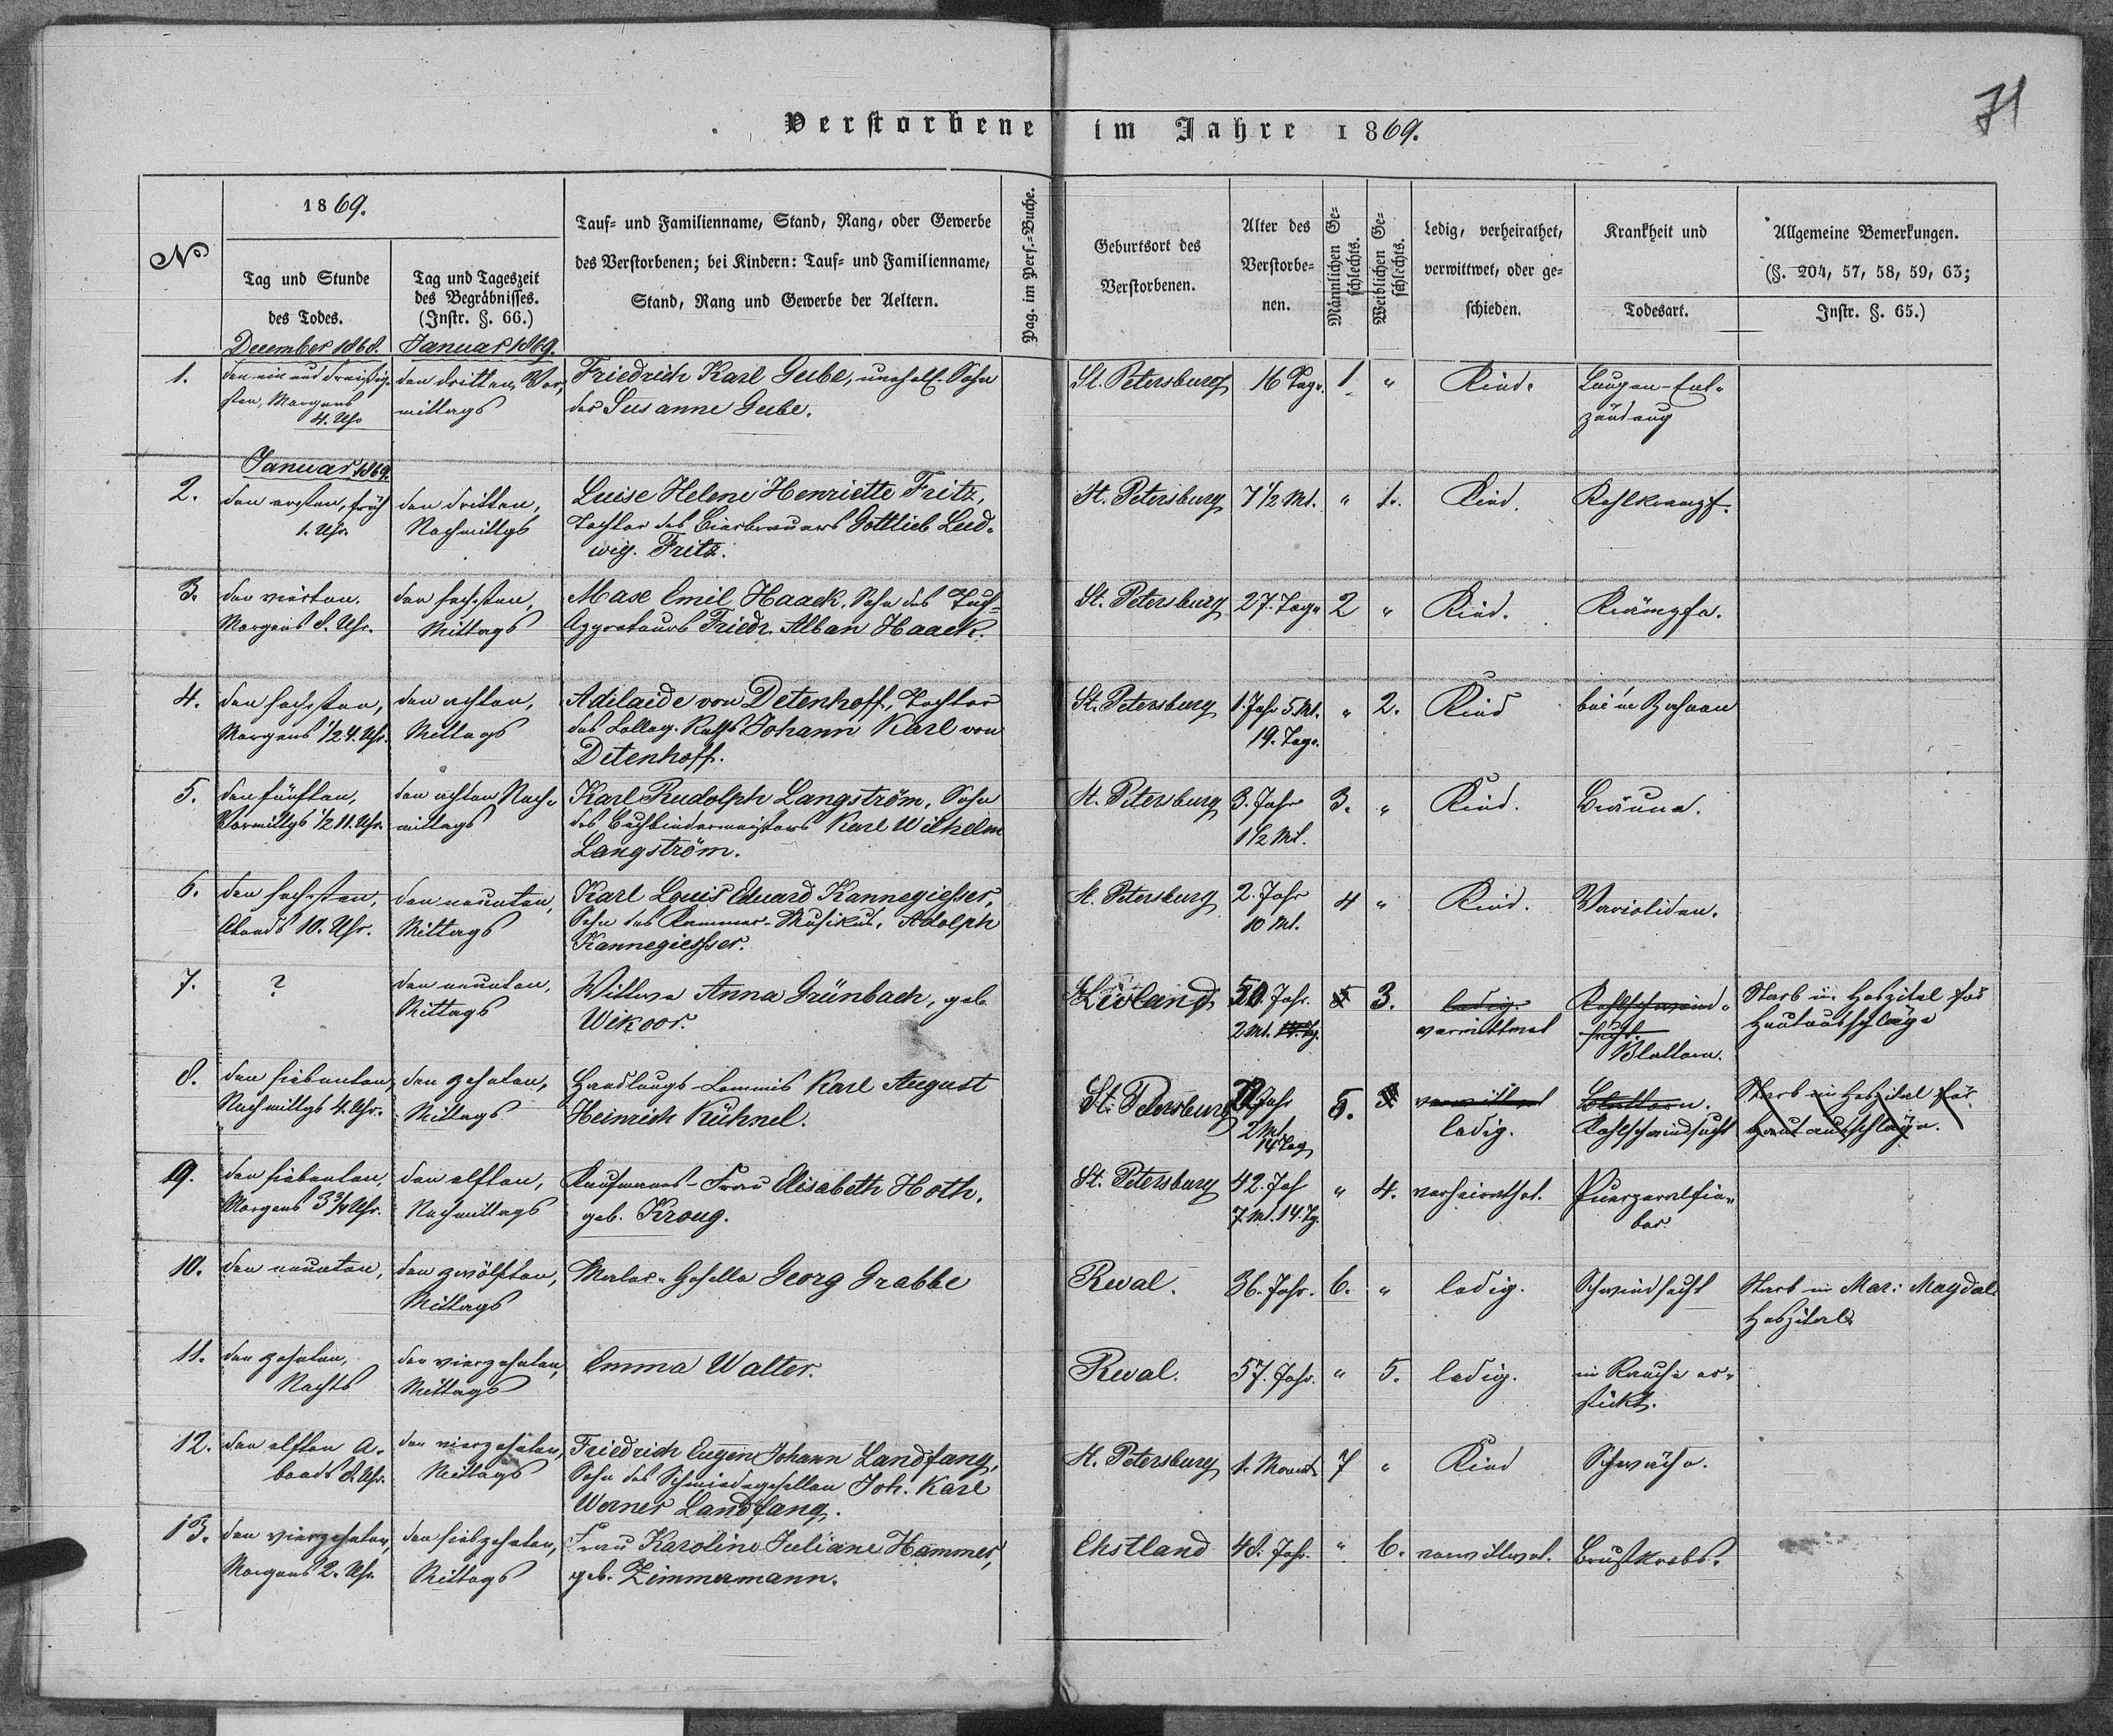 71
Verstorbene im Jahre 1869.
No
1869.
Tag und Stunde
des Todes.
Tag und Tageszeit
des Begräbnisses.
(Instr. §. 66.)
Tauf- und Familienname, Stand, Rang, oder Gewerbe
des Verstorbenen; bei Kindern: Tauf- und Familienname,
Stand, Rang und Gewerbe der Aeltern.
Pag. im Pers.-Buche.
Geburtsort des
Verstorbenen.
Alter des
Verstorbe-
nen.
Männlichen Ge-
schlechts.
Weiblichen Ge-
schlechts.
Ledig, verheirathet,
verwittwet, oder ge-
schieden.
Krankheit und
Todesart.
Allgemeine Bemerkungen.
(§. 204, 57, 58, 59, 63;
Instr. §. 65.)
December 1868.
Januar 1869.
1.
den ein und dreißig-
sten, Morgens
4. Uhr
den dritten, Vor-
mittags
Friedrich Karl Geibe, unehel. Sohn
der Susanne Geibe.
St. Petersburg
16 Tage.
1.
"
Kind.
Lungen-Ent-
zündung
Januar 1869.
2.
den ersten, früh
1. Uhr.
den dritten,
Nachmittgs
Luise Helene Henriette Fritz,
Tochter des Bierbrauers Gottlieb Lud-
wig Fritz.
St. Petersburg
7 1/2 Mt.
"
1.
Kind.
Kehlkrampf.
3.
den vierten.
Morgens 8. Uhr.
den sechsten,
Mittags
Max Emil Haack, Sohn des Tuch-
Appreteurs Friedr. Alban Haack.
St. Petersburg
27. Tage
2
"
Kind.
Krämpfe.
4.
den sechsten,
Morgens 1/2 4. Uhr.
den achten,
Mittags
Adelaide von Detenhoff, Tochter
des Colleg. Raths Johann Karl von
Detenhoff.
St. Petersburg
1. Jahr 5 Mt.
19. Tage.
"
2.
Kind
bei'm Zahnen
5.
den fünften,
Vormittgs 1/2 11. Uhr.
den achten Nach-
mittags
Karl Rudolph Langström, Sohn
des Buchbindermeisters Karl Wilhelm
Langström.
St. Petersburg
3. Jahr
1 1/2 Mt.
3.
"
Kind.
Bräune.
6.
den sechsten,
Abends 10. Uhr.
den neunten,
Mittags
Karl Louis Eduard Kannegiesser,
Sohn des Kammer-Musikus, Adolph
Kannegiesser.
St. Petersburg
2. Jahr
10 Mt.
4
"
Kind.
Varioliden.
7.
?
den neunten,
Mittags
Wittwe Anna Grünbach, geb.
Wikoor.
Livland
50. Jahr.
2 Mt. 14. Tg.
5
3.
ledig.
verwittwet
Kehlschwind-
sucht.
Blattern.
Starb im Hospital für
Hautausschläge
8.
den siebenten,
Nachmittgs 4. Uhr.
den zehnten,
Mittags
Handlungs-Commis Karl August
Heinrich Kühnel.
St. Petersburg
Jahr
2 Mt
14 Tag
5.
3
verwittwet
ledig.
Blattern.
Kehlschwindsucht
Starb im Hospital für
Hautausschläge.
9.
den siebenten,
Morgens 3 3/4 Uhr.
den elften,
Nachmittags
Kaufmanns-Frau Elisabeth Hoth,
geb. Kroug.
St. Petersburg
42. Jah
7. Mt. 14. Tg.
"
4.
verheirathet.
Puerperalfie-
ber.
10.
den neunten,
den zwölften,
Mittags
Maler-Geselle Georg Grabbe
Reval.
36. Jahr.
6.
"
ledig.
Schwindsucht
Starb im Mar: Magdal.
Hospital
11.
den zehnten,
Nachts
den vierzehnten,
Mittags
Emma Walter.
Reval.
57. Jahr.
"
5.
ledig.
im Rauche er-
stickt.
12.
den elften A-
bends 8. Uhr.
den vierzehnten,
Mittags
Friedrich Eugen Johann Landfang,
Sohn des Schmiedegesellen Joh. Karl
Werner Landfang.
St. Petersburg
1. Monat
7
"
Kind
Schwäche.
13.
den vierzehnten,
Morgens 2. Uhr.
den siebzehnten,
Mittags
Frau Karoline Juliane Hammer,
geb. Zimmermann.
Ehstland
48. Jahr.
"
6.
verwittwet.
Brustkrebs.